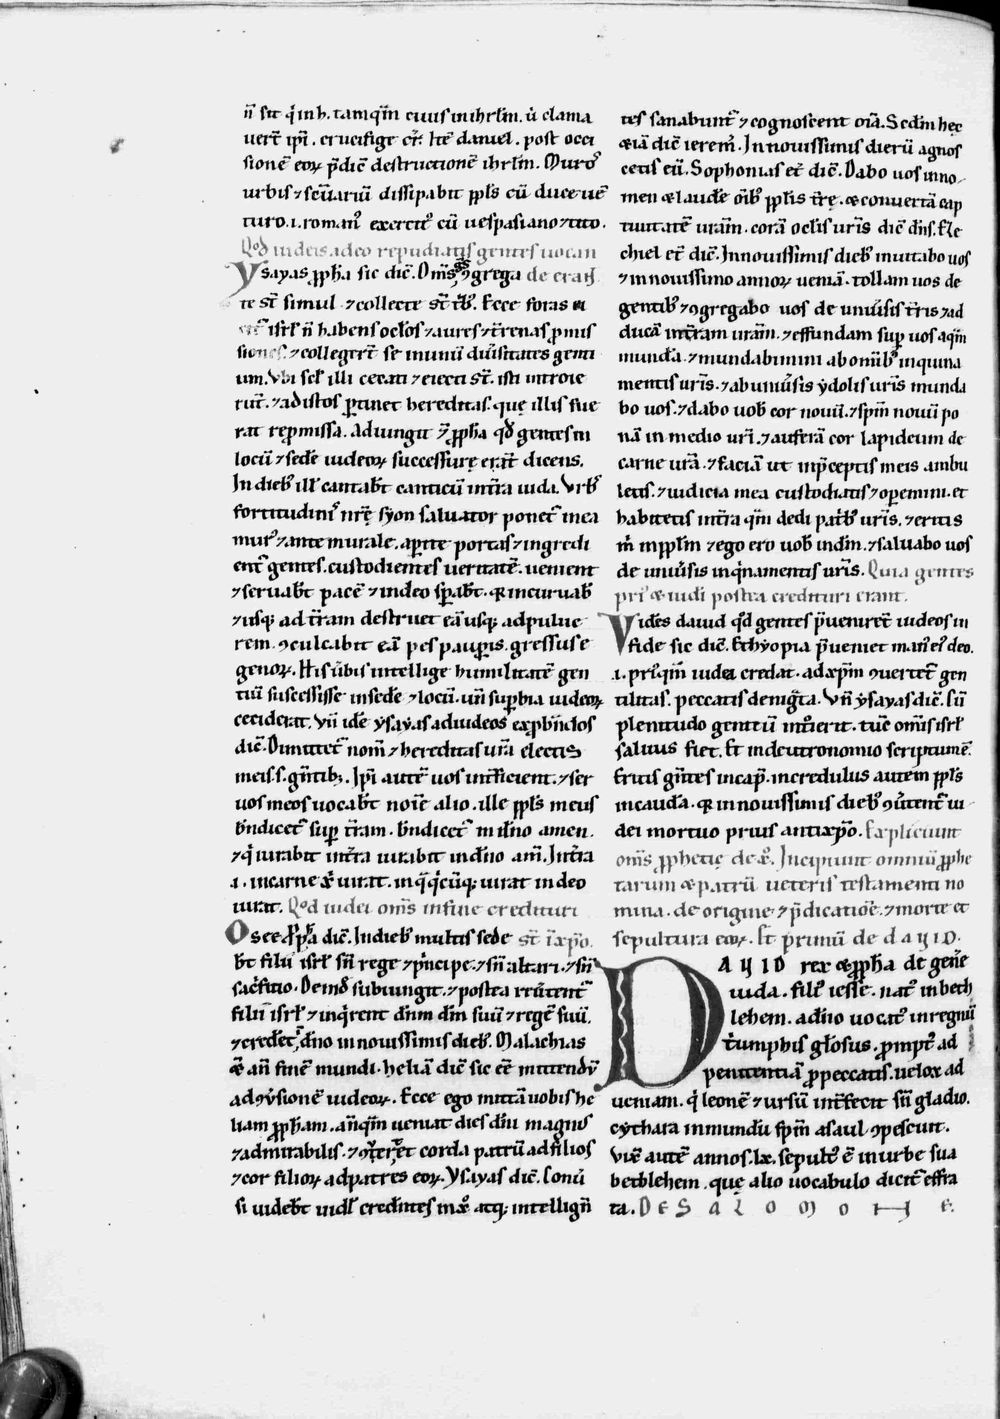 n̄ sit q̇ in h̵. tamq̄m civis in ihrl̄m. ỉ clama
uer̄t ip̄i. crucifige cr̄. Itē daniel. post occi
sionē eoꝝ p̄diē destructionē ihrl̄m. Muroꝰ
urbis ⁊ sc̄uariū dissipabit ppl̄s cū duce uē
turo .i. romanꝰ exercitꝰ cū uespasiano ⁊ tito.
Qd̄ iudeis adeo repudiatis gentes uocan
Ysayas ꝓph̄a sic diē. Om̄s ꝯgrega de erant
te st̄ simul ⁊ collecte st̄ tbꝰ. Ecce foras
isrl̄ n̄ habens oclōs ⁊ aures ⁊ t̄renas ꝓmis
siones. ⁊ collegert̄ se in unū diusitates genti
um. Vbi scl̄ illi cecati ⁊ eiecti st̄. isti introie
rūt. ⁊ ad istos ꝑtinet hereditas. quę illis fue
rat repmissa. Adiungit ⁊̄ ꝓph̄a qd̄ gentes in
locū ⁊ sedē iudeoꝝ successurę erāt dicens.
In diebꝰ ill̄ cantabt̄ canticū in tr̄a iuda. Vrbꝰ
fortitudinis nr̄ę syon saluator ponet̄ in ea
murꝰ ⁊ ante murale. aperite portas ⁊ ingredi
ent̄ gentes. custodientes ueritatē. uenient
⁊ seruabt̄ pacē ⁊ in deo spabt̄. qꝛ incuruabꝰ
⁊ usqꝫ ad tr̄am destruet eā usqꝫ ad pulue
rem. ꝯculcabit eā pes pauꝑis. gressus e
genoꝝ. His ūbis intellige humilitatē gen
tiū suscessisse in sede ⁊ locū. un̄ suꝑbia iudeoꝝ
ceciderat. Vn̄ idē ysayas ad iudeos exprobn̄dos
diē. Dimittet̄ nom̄ ⁊ hereditas ur̄a electis
meis. s. gn̄tibꝫ. Ip̄i autē uos inficient. ⁊ ser
uos meos uocabt̄ noīe alio. ille ppl̄s meus
bn̄dicet̄ suꝑ tr̄am. bn̄dicet̄ in dn̄o amen.
⁊ q̇ iurabit in tr̄a iurabit in dn̄o am̄. In tr̄a
.i. in carne xp̄ iurat. in q̄ q̇cūqꝫ iurat in deo
iurat. Qd̄ iudei om̄s in fine credituri
Osee ꝓph̄a diē. In diebꝰ multis sede st̄ i xp̄o.
bt̄ filii isrl̄ sn̄ rege ⁊ p̄ncipe. ⁊ sn̄ altari. ⁊ sn̄
sac̄ficio. Deinđ subiungit. ⁊ postea reūtent̄
filii isrl̄ ⁊ inq̇rent dn̄m dm̄ suū ⁊ regē suū.
⁊ credet̄ dn̄o in nouissimis diebꝰ. Malachias
⁊̄ an̄ finē mundi. heliā diē sic eē mittendū
ad ꝯūsionē iudeoꝝ. Ecce ego mittā uobis he
liam ꝓph̄am. anq̄m ueniat dies dn̄i magnus
⁊ admirabilis. ⁊ ꝯūteret corda patrū ad filios
⁊ cor filioꝝ ad patres eoꝝ. Ysayas diē. Conū
si uidebt̄ uidl̄ credn̄tes in xp̄. atqꝫ intellign̄
tes sanabunt̄ ⁊ cognoscent oīa. Scdm̄ hęc
⁊iā diē ierem̄. In nouissimis dierū agnos
cetis eū. Sophonias et̄ diē. Dabo uos in no
men ⁊ laudē oībꝰ ppl̄is tr̄ę. ⁊ conuertā cap
tiuitatē uram̄. corā oclis̄ uris̄ diē dn̄s. Eze
chiel et̄ diē. In nouissimis diebꝰ mutabo uos
⁊ in nouissimo annoꝝ ueniā. tollam uos de
gentibꝰ ⁊ ꝯgregabo uos de uniuūsis tr̄is ⁊ ad
ducā in tr̄am uram̄. ⁊ effundam suꝑ uos aqm̄
mundā. ⁊ mundabimini ab omībꝰ inquina
mentis uris̄. ⁊ ab uniuūsis ydolis uris̄ munda
bo uos. ⁊ dabo uobꝰ cor nouū. ⁊ spm̄ nouū po
nā in medio urī. ⁊ auferā cor lapideum de
carne urā. ⁊ faciā ut in p̄ceptis meis ambu
letis. ⁊ iudicia mea custodiatis ⁊ opemini. et
habitetis in tr̄a qm̄ dedi patbꝰ uris̄. ⁊ eritis
m̊ in pplm̄ ⁊ ego ero uobꝰ in dm̄. ⁊ saluabo uos
de uniuūsis inq̇namentis uris̄. Quia gentes
priꝰ ⁊ iudi postea credituri erant.
Vidēs dauid qd̄ gentes p̄uenirēt iudeos in
fide sic diē. Ethyopia p̄ueniet manꝰ eiꝰ deo.
.i. priꝰq̄m iudea credat. ad xp̄m ꝯuertet̄ gen
tilitas. peccatis denigrata. Vn̄ ysayas diē. Cū
plenitudo gentiū int̄erit. tūc om̄is isrl̄
saluus fiet. Et in deutronomio scriptum ē.
Eritis gn̄tes in cap̄. incredulus autem ppl̄s
in caudā. qꝛ in nouissimis diebꝰ ꝯūtent̄ iu
dei mortuo prius antixp̄o. Expliciunt
om̄s ꝓphetię de xp̄. Incipiunt omniū ꝓphe
tarum ⁊ patrū ueteris testamenti no
mina. de origine ⁊ p̄dicatiōe. ⁊ morte et
sepultura eoꝝ. Et primū de dauid.
DAVID rex ⁊ ꝓph̄a de genē
iuda. filiꝰ iesse. natꝰ in beth
lehem. a dn̄o uocatꝰ in regnū
t̄umphis gl̄osus. prompt̄ ad
penitentiā ꝓ peccatis. uelox ad
ueniam. q̇ leonē ⁊ ursū int̄fecit sn̄ gladio.
cythara in mundū spm̄ a saul ꝯpescuit.
Vix̄ autē annos. lx. sepultꝰ ē in urbe sua
bethlehem. quę alio uocabulo dicit̄ effra
ta. DE SALOMONE.